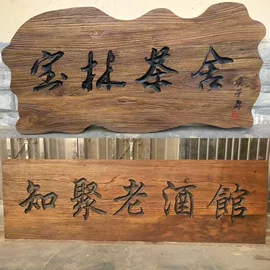 宝林茶舍
知聚老酒館